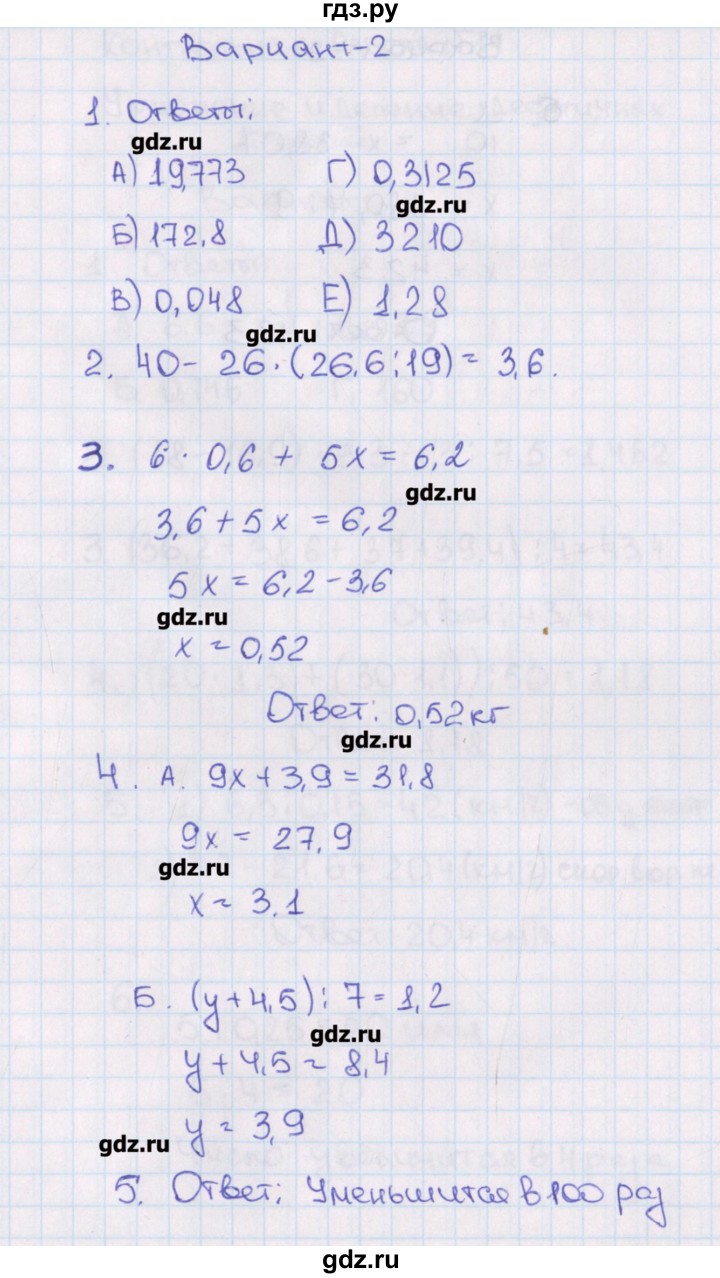 гдз.ру
Вариант-2
1. Ответы:
gdz.ru
А) 19,773 Г) 0,3125
gdz.ru
Б) 172,8 Д) 3210
В) 0,048 Е) 1,28
gdz.ru
2. 40 - 26 · (26,6 : 19) = 3,6.
3. 6 · 0,6 + 5x = 6,2
gdz.ru
3,6 + 5x = 6,2
5x = 6,2 - 3,6
gdz.ru
x = 0,52
Ответ: 0,52 кг
gdz.ru
4. А. 9x + 3,9 = 31,8
9x = 27,9
gdz.ru
x = 3,1
Б. (y + 4,5) : 7 = 1,2
gdz.ru
y + 4,5 = 8,4
y = 3,9
gdz.ru
5. Ответ: Уменьшится в 100 раз
gdz.ru